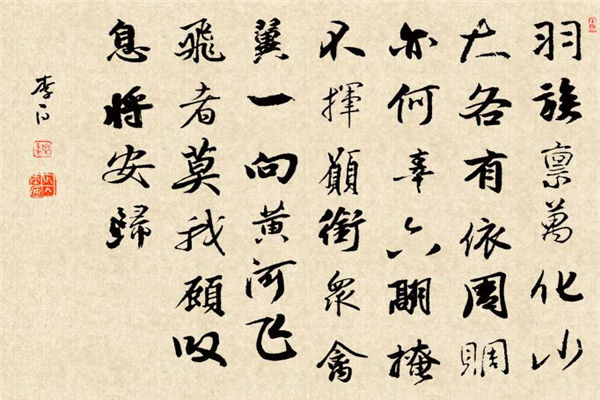 羽族禀萬化小
大各有依周賙
亦何辜六翮掩
不揮願銜眾禽
翼一向黄河飞
飛者莫我顧叹
息將安歸
李白